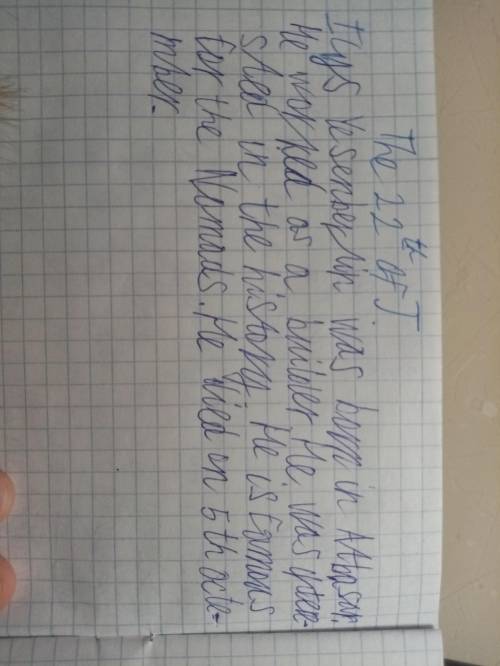 The 22th of J
Ilys Yesenberlin was born in Atbasar.
He worked as a builder. He was yter-
sted in the history. He is famous
for the Nomads. He died on 5th octe-
mber.